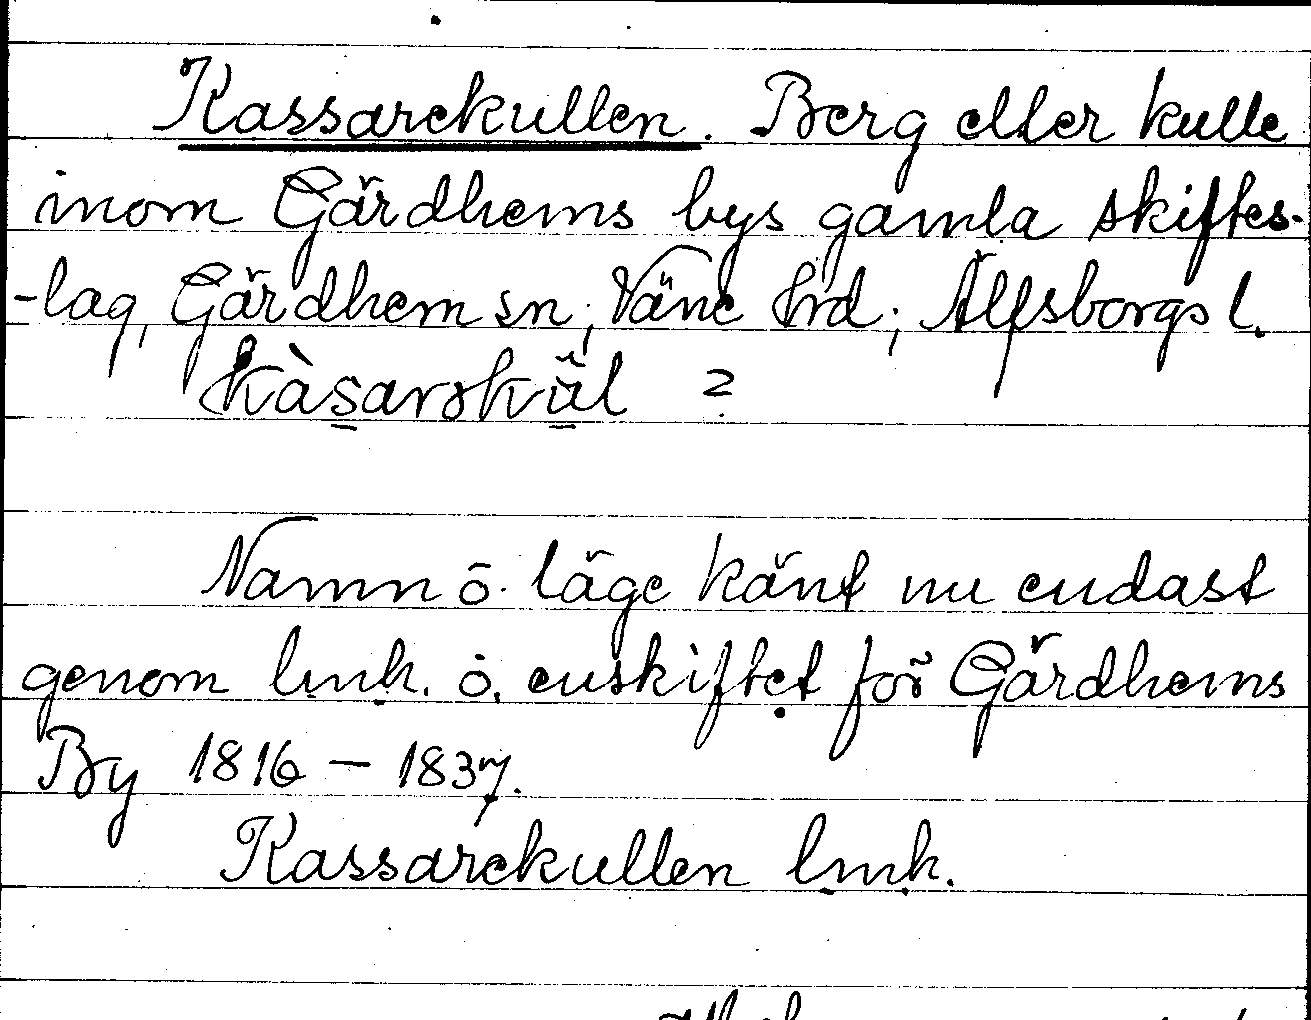 Kassarekullen. Berg eller kulle
inom Gärdhems bys gamla skiftes-
-lag, Gärdhem sn; Väne hrd; Älfsborgs l.
kàsarəkŭl ?
Namn o. läge känt nu endast
genom lmk. o. enskiftet för Gärdhems
By 1816 – 1837.
Kassarekullen lmk.